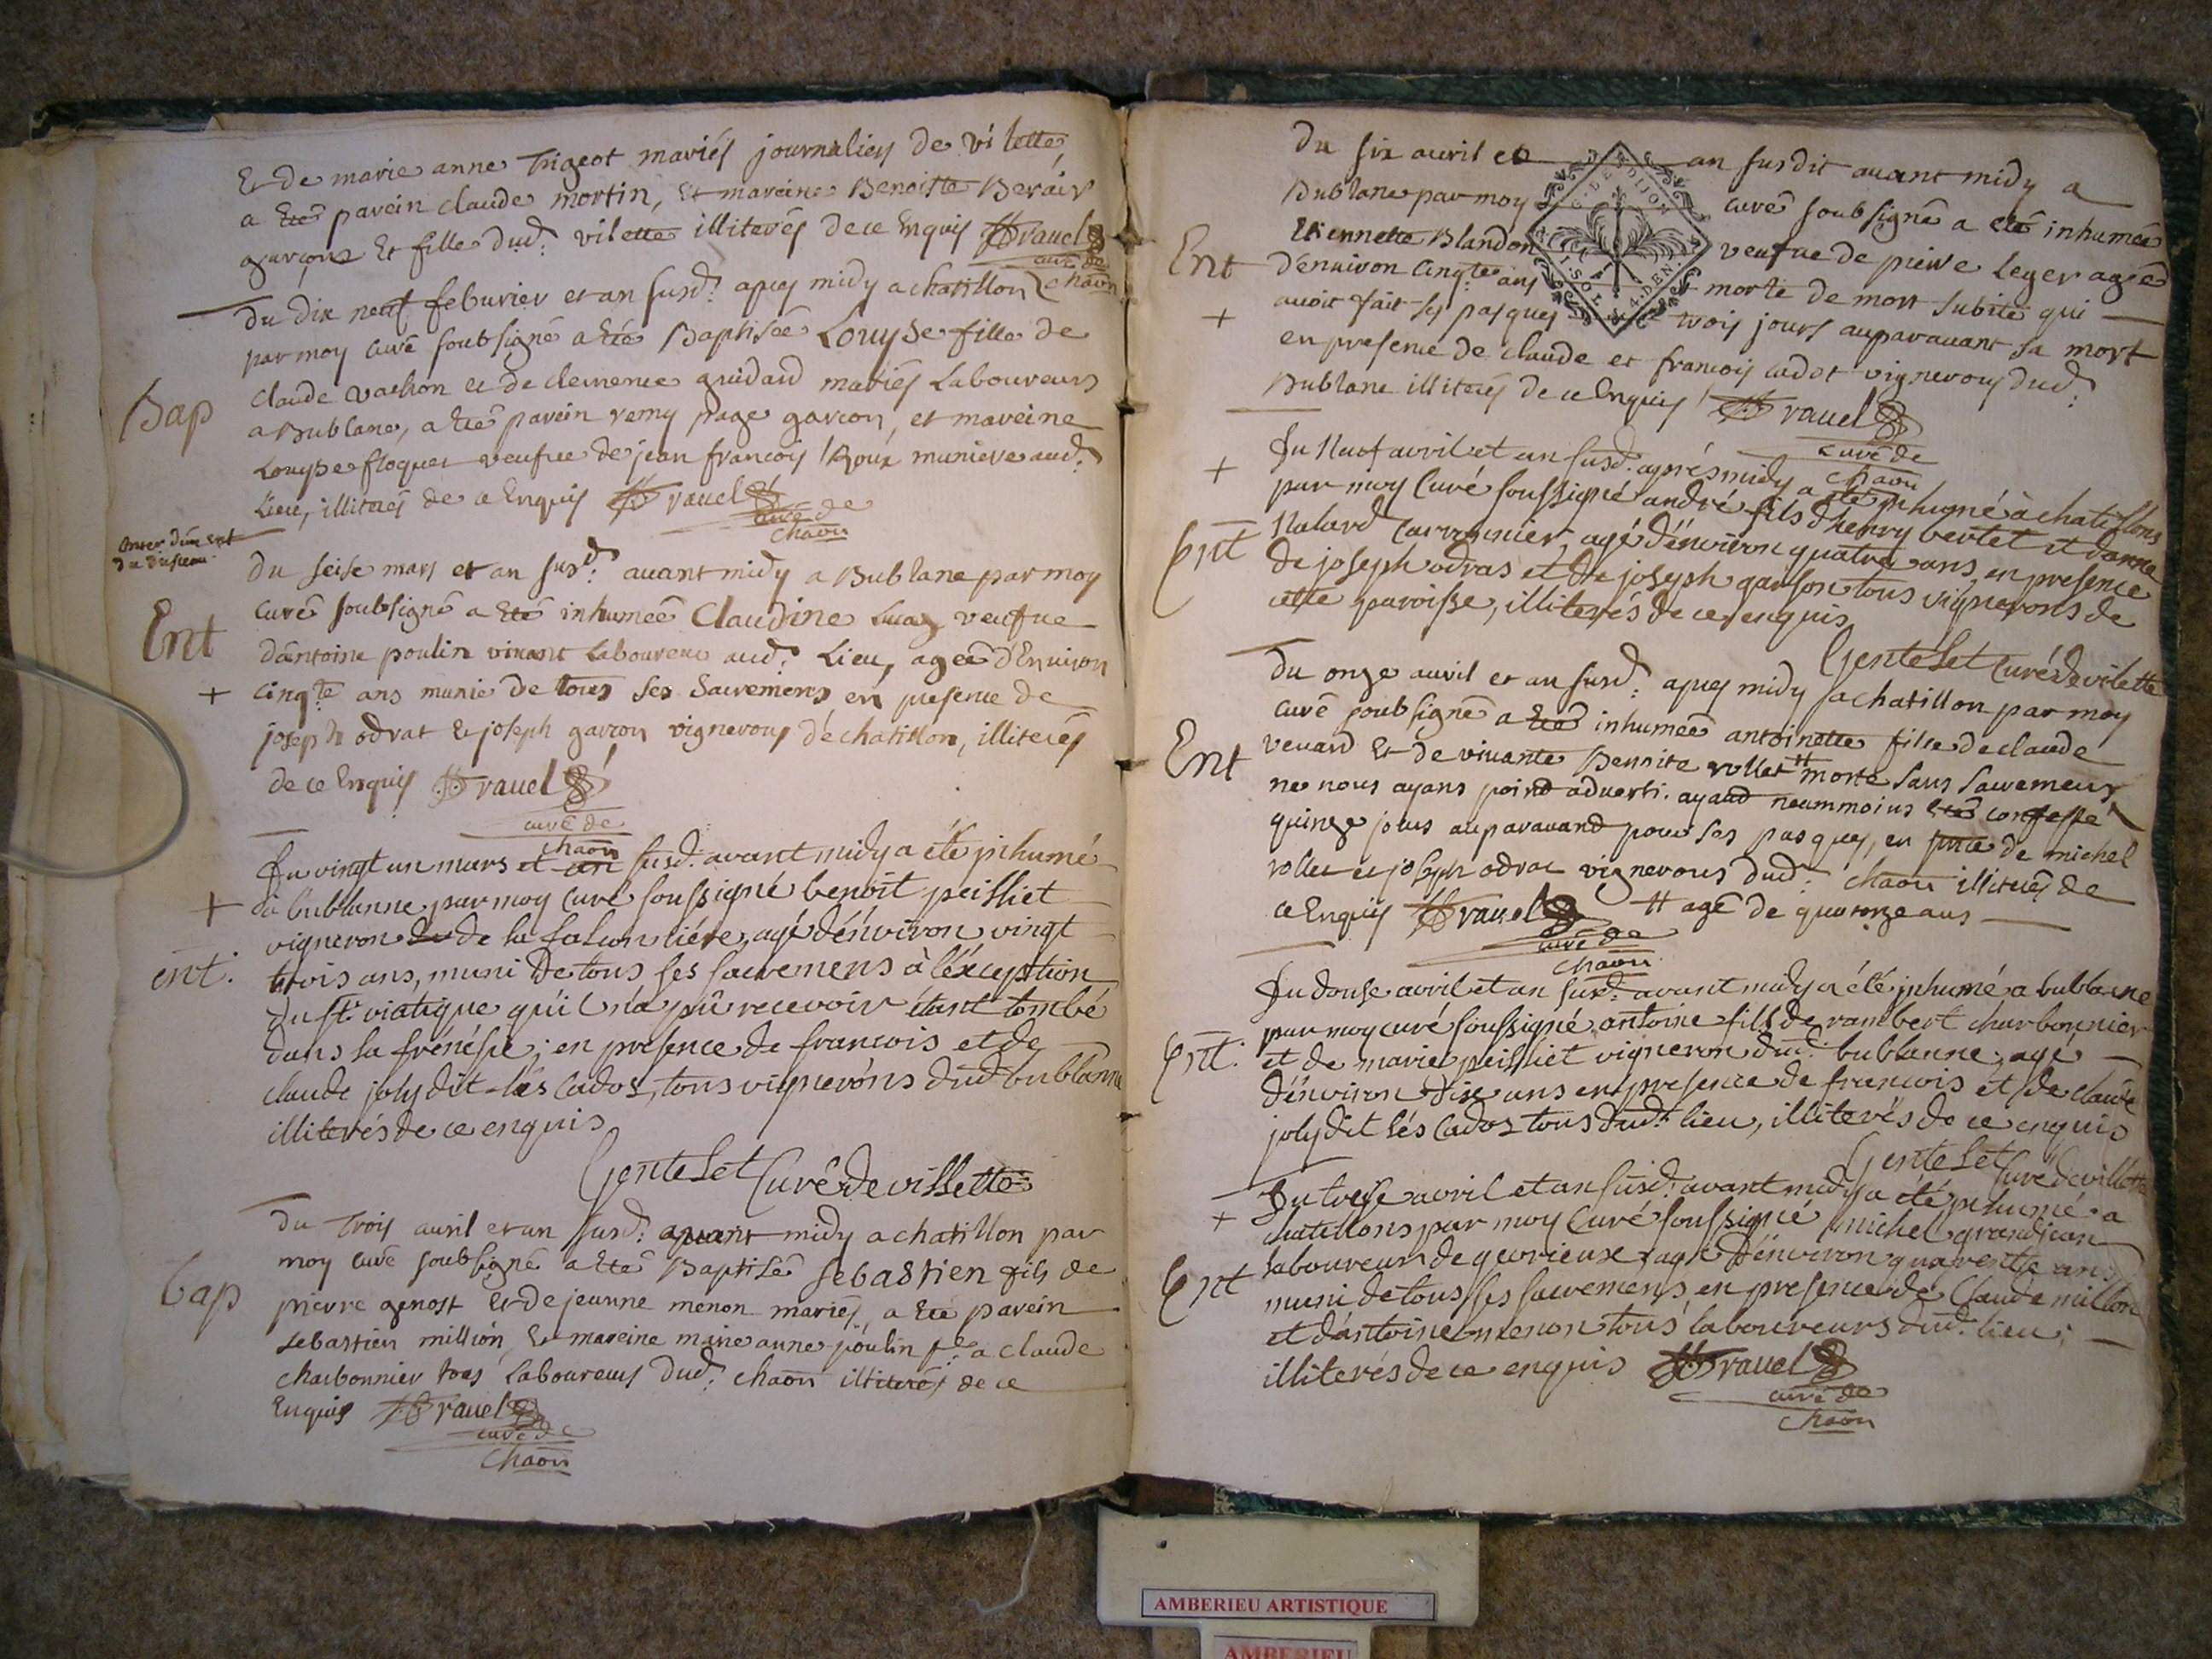 Et de marie anne Trigeot mariés journaliers de vilette,
a été parein claude mortin, et mareine Benoitte Berair
garçon et fille dud: vilette illiterés de ce Enquis ravel
curé de
chaon
Du dix neuf feburier et an susd: apres midy a chatillon
par moy curé soubsigné a été Baptisée Louyse fille de
Bap
claude vachon et de clemence guidard mariés Laboureurs
a Bublane, a été parein remy page garcon, et mareine
Louyse floquet veufve de jean francois Roux muniere aud:
Lieu, illiterés de ce Enquis ravel
curé de
chaon
du seise mars et an susd: avant midy a Bublane par moy
curé soubsigné a été inhumée Claudine Luaz veufve
Ent
dantoine poulin vivant Laboureur aud: Lieu, agée d'Environ
+ cinqte ans munie de tous ses Sacremens en presence de
joseph odrat et joseph garcon vignerons de chatillon, illiterés
de ce Enquis ravel
curé de
chaon
Du vingt un mars et an susd: avant midy a été inhumé
+ à bublanne par moy curé soussigné benoit peissiet
vigneron de la falconliére, agé dénviron vingt
ent:
trois ans, muni de tous ses sacremens à léxception
du st: viatique qu'il n'a pû recevoir étant tombé
dans la frénésie; en presence de francois et de
claude joly dit lés Cados, tous vignerons dud: bublanne
illiterés de ce enquis
Gentelet Curé de villette
du Trois avril et an susd: avant midy a chatillon par
moy curé soubsigné a été Baptisé sebastien fils de
bap
pierre genost et de jeanne menon mariés, a été parein
sebastien million, et mareine marie anne poulin fe: a claude
charbonnier tous Laboureurs dud: chaon illiterés de ce
Enquis ravel
curé de
chaon
Du six avril et an susdit avant midy a
Bublane par moy curé soubsigné a été inhumée
Etiennette Blandon veufve de pierre Leger agée
Ent
d'environ Cinqte ans morte de mort subite qui
+ avoit fait ses pasques trois jours auparavant sa mort
en presence de claude et francois cadot vignerons dud:
Bublane illiterés de ce Enquis ravel
curé de
chaon
G. DE DIJON
4. DEN.
+ Du Neuf avril et an susd: aprés midy a été inhumé à chatillons
par moy Curé soussigné andré fils d'henry bertet et danne
Ent
agé dénviron quatre ans, en presence
de joseph odras et de joseph garson tous vignerons de
cette paroisse, illiterés de ce enquis
Gentelet Curé de vilette
Du onze avril et an susd: apres midy a chatillon par moy
curé soubsigné a été inhumée antoinette fille de claude
Ent
venard et de vivante Benoite rollet # morte sans sacremens
ne nous ayans point adverti. ayand neammoins été confessé
quinze jours auparavand pour ses pasques, en pnce de michel
rollet et joseph odrat vignerons dud: chaon illiterés de
ce Enquis ravel # agé de quatorze ans
curé de
chaon
Du douse avril et an susd: avant midy a été inhumé a bublanne
par moy curé soussigné antoine fils de rambert charbonnier
Ent:
et de marie peissiet vigneron dud: bublanne, agé
dénviron dix ans en presence de francois et de claude
joly dit lés Cados tous dud: lieu, illiterés de ce enquis
Gentelet Curé de villette
Du treise avril et an susd: avant midy a été inhumé a
+ chatillons par moy Curé soussigné michel grandjean
laboureur de agé dénviron quarente ans
Ent
muni de tous ses sacremens, en presence de Claude million
et dantoine menon tous laboureurs dud: lieu;
illiterés de ce enquis ravel
curé de
chaon
AMBERIEU ARTISTIQUE
AMBERIEU